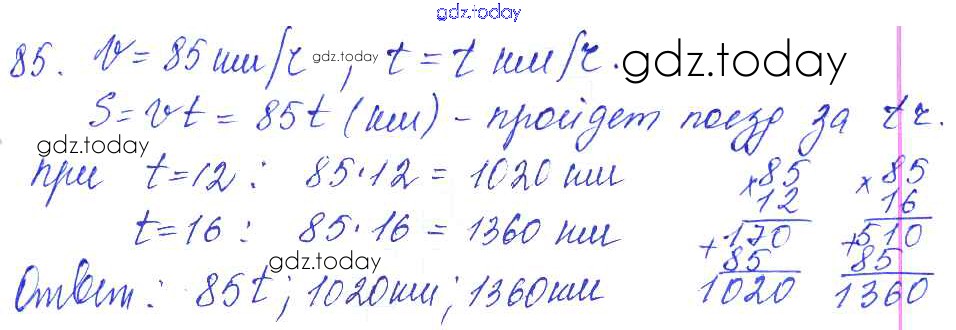 gdz.today
85. v = 85 км/ч gdz.today , t = t км/ч. gdz.today
S = vt = 85t (км) - пройдет поезд за t ч.
gdz.today
при t = 12 : 85·12 = 1020 км
t = 16 : 85·16 = 1360 км
gdz.today
Ответ : 85t ; 1020км ; 1360км
×85
12
170
+85
1020
×85
16
510
+85
1360